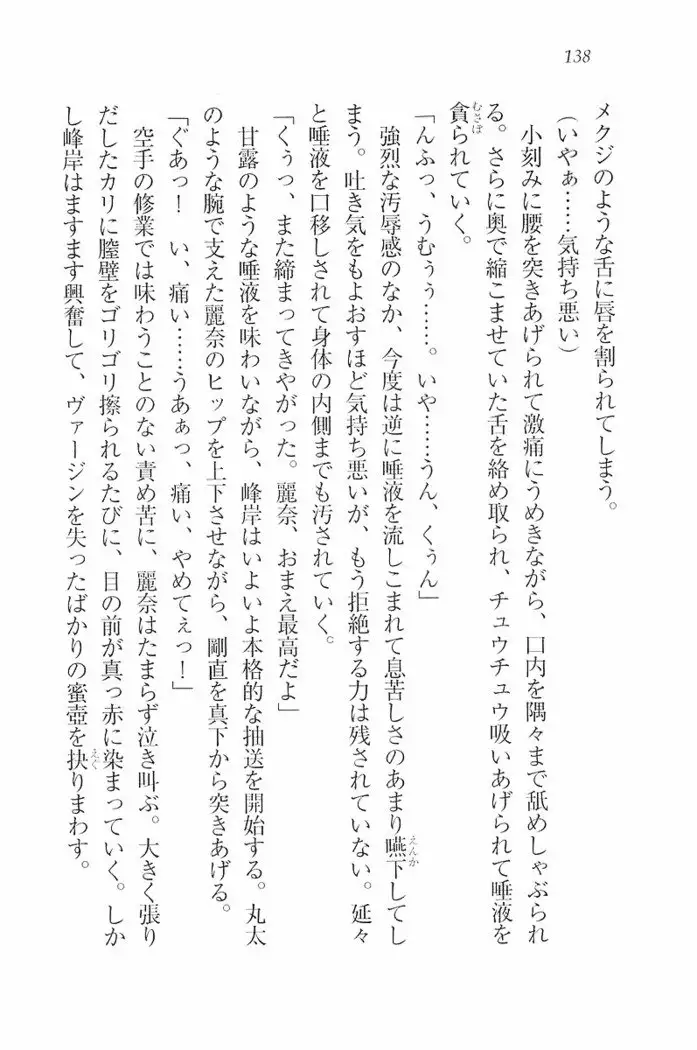 138
メクジのような舌に唇を割られてしまう。
(いやぁ……気持ち悪い)
　小刻みに腰を突きあげられて激痛にうめきながら、口内を隅々まで舐めしゃぶられ
る。さらに奥で縮こませていた舌を絡め取られ、チュウチュウ吸いあげられて唾液を
貪られていく。
「んふっ、うむぅぅ……。いや……うん、くぅん」
　強烈な汚辱感のなか、今度は逆に唾液を流しこまれて息苦しさのあまり嚥下してし
まう。吐き気をもよおすほど気持ち悪いが、もう拒絶する力は残されていない。延々
と唾液を口移しされて身体の内側までも汚されていく。
「くぅっ、また締まってきやがった。麗奈、おまえ最高だよ」
　甘露のような唾液を味わいながら、峰岸はいよいよ本格的な抽送を開始する。丸太
のような腕で支えた麗奈のヒップを上下させながら、剛直を真下から突きあげる。
「ぐあっ！　い、痛い……うあぁっ、痛い、やめてぇっ！」
　空手の修業では味わうことのない責め苦に、麗奈はたまらず泣き叫ぶ。大きく張り
だしたカリに膣壁をゴリゴリ擦られるたびに、目の前が真っ赤に染まっていく。しか
し峰岸はますます興奮して、ヴァージンを失ったばかりの蜜壺を抉りまわす。